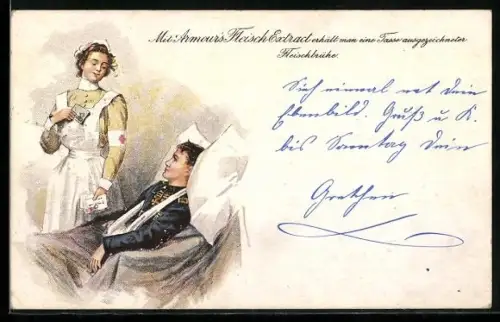 Mit Armour's Fleisch Extract erhält man eine Tasse ausgezeichneter
Fleischbrühe.
Sieh einmal
Ebenbild. Gruß u K.
bis Sonntag Dein
Grethen